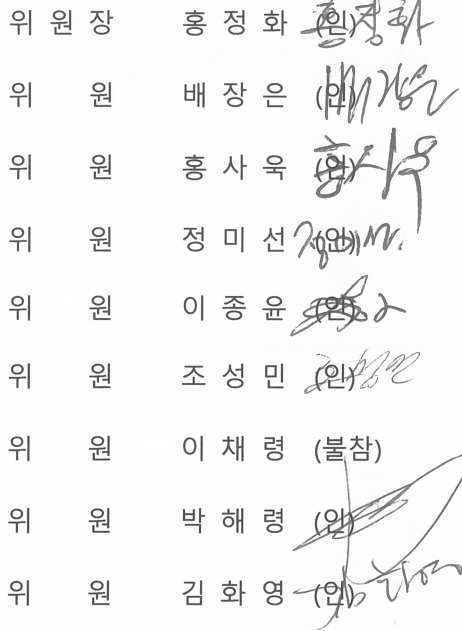 위 원 장 홍 정 화 (인)
위 원 배 장 은 (인)
위 원 홍 사 욱 (인)
위 원 정 미 선 (인)
위 원 이 종 윤 (인)
위 원 조 성 민 (인)
위 원 이 채 령 (불참)
위 원 박 해 령 (인)
위 원 김 화 영 (인)